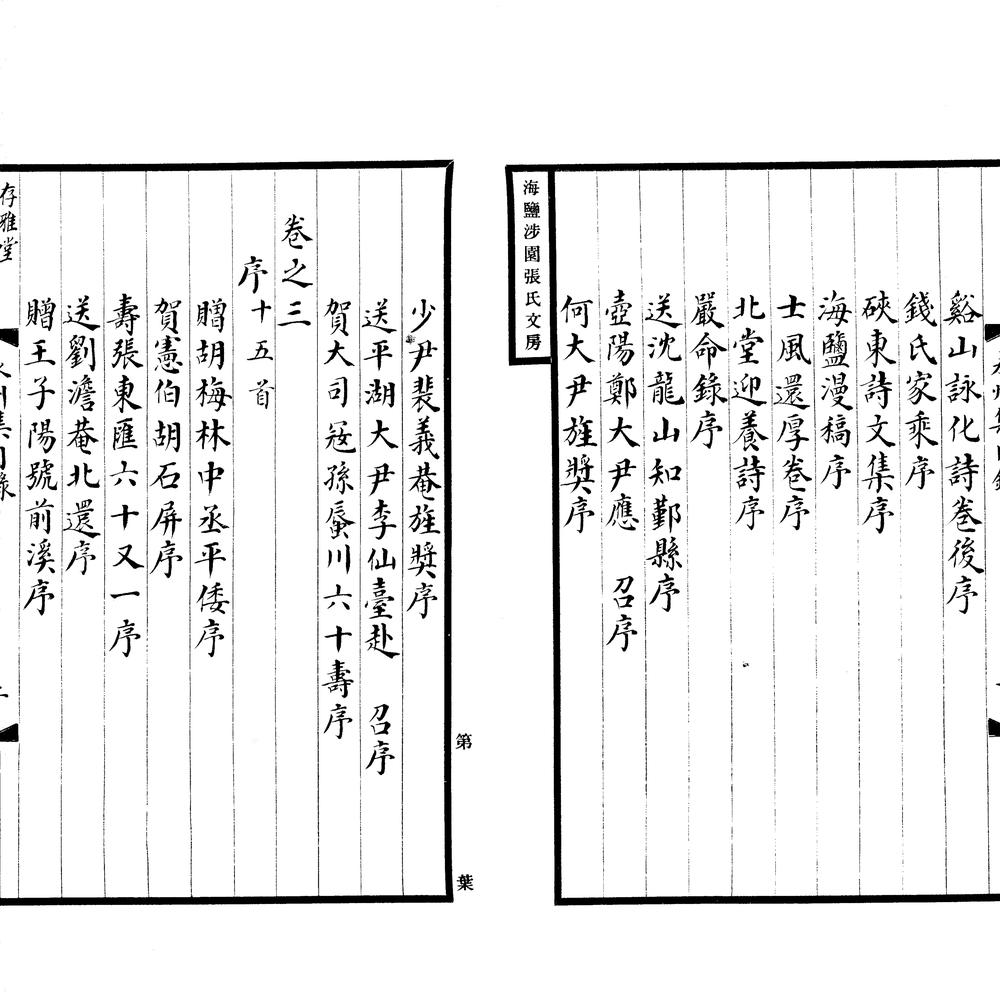 谿山詠化詩卷後序
錢氏家乘序
硤東詩文集序
海鹽漫稿序
士風還厚卷序
北堂迎養詩序
嚴命錄序
送沈龍山知鄞縣序
壺陽鄭大尹應 召序
何大尹旌獎序
海鹽涉園張氏文房
少尹裴義菴旌獎序
送平湖大尹李仙臺赴 召序
賀大司寇孫蜃川六十壽序
卷之三
序十五首
贈胡梅林中丞平倭序
賀憲伯胡石屏序
壽張東匯六十又一序
送劉澹菴北還序
贈王子陽號前溪序
存雅堂
第 葉